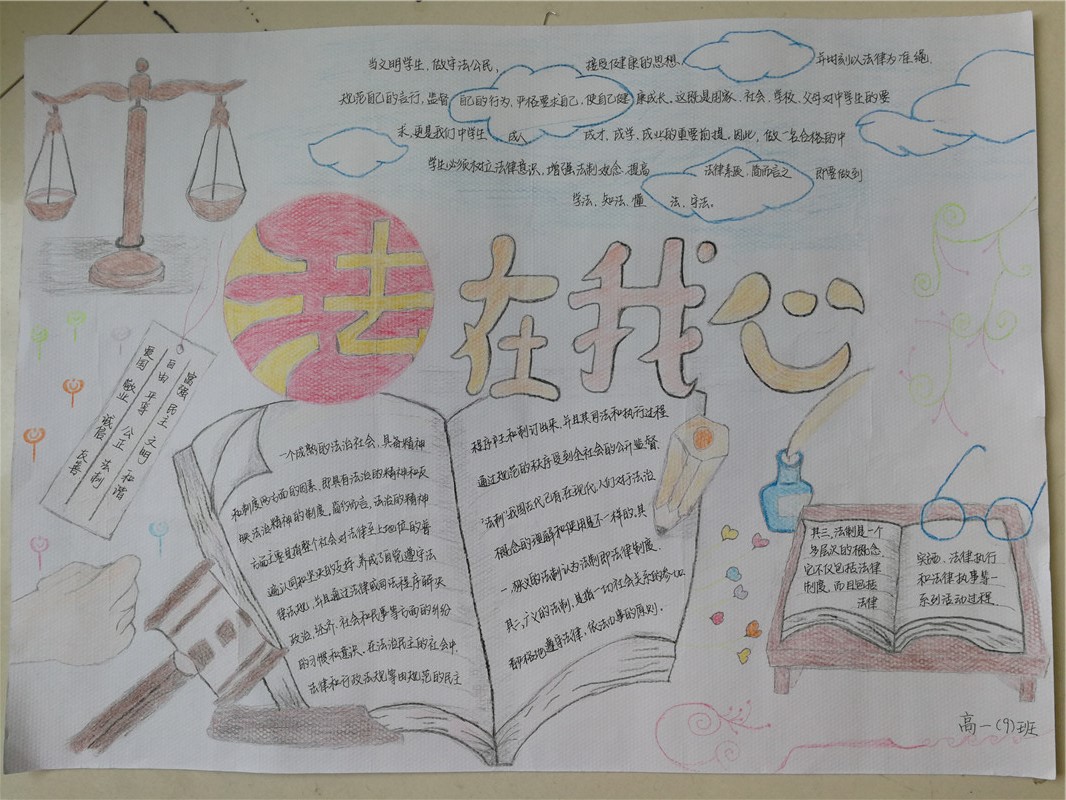 当文明学生，做守法公民，接受健康的思想，并时刻以法律为准绳，
规范自己的言行，监督自己的行为，严格要求自己，使自己健康成长。这既是国家、社会、学校、父母对中学生的要
求，更是我们中学生成人成才、成学、成业的重要前提，因此，做一名合格的中
学生必须树立法律意识，增强法制观念，提高法律素质，简而言之即要做到
学法、知法、懂法、守法。
法在我心
富强 民主 文明 和谐
自由 平等 公正 法制
爱国 敬业 诚信 友善
一个成熟的法治社会，具备精神
和制度两方面的因素，即具有法治的精神和反
映法治精神的制度，简约而言，法治的精神
方面主要是指整个社会对法律至上地位的普
遍认同和坚决的支持，养成了自觉遵守法
律法规，并且通过法律或司法程序解决
政治、经济、社会和民事等方面的纠纷
的习惯和意识，在法治民主的社会中，
法律和行政法规等由规范的民主
程序产生和制订出来，并且其司法和执行过程
通过规范的秩序受到全社会的公开监督
法制我国古代已有，在现代，人们对行法治
概念的理解和使用是不一样的，其
一，狭义的法制认为法制即法律制度，
其二，广义的法制，是指一切社会关系的参加
都严格地遵守法律，依法办事的原则，
其三，法制是一个
多层次的概念，
它不仅包括法律
制度，而且包括
法律
实施、法律执行
和法律执事等一
系列活动过程。
高一(9)班